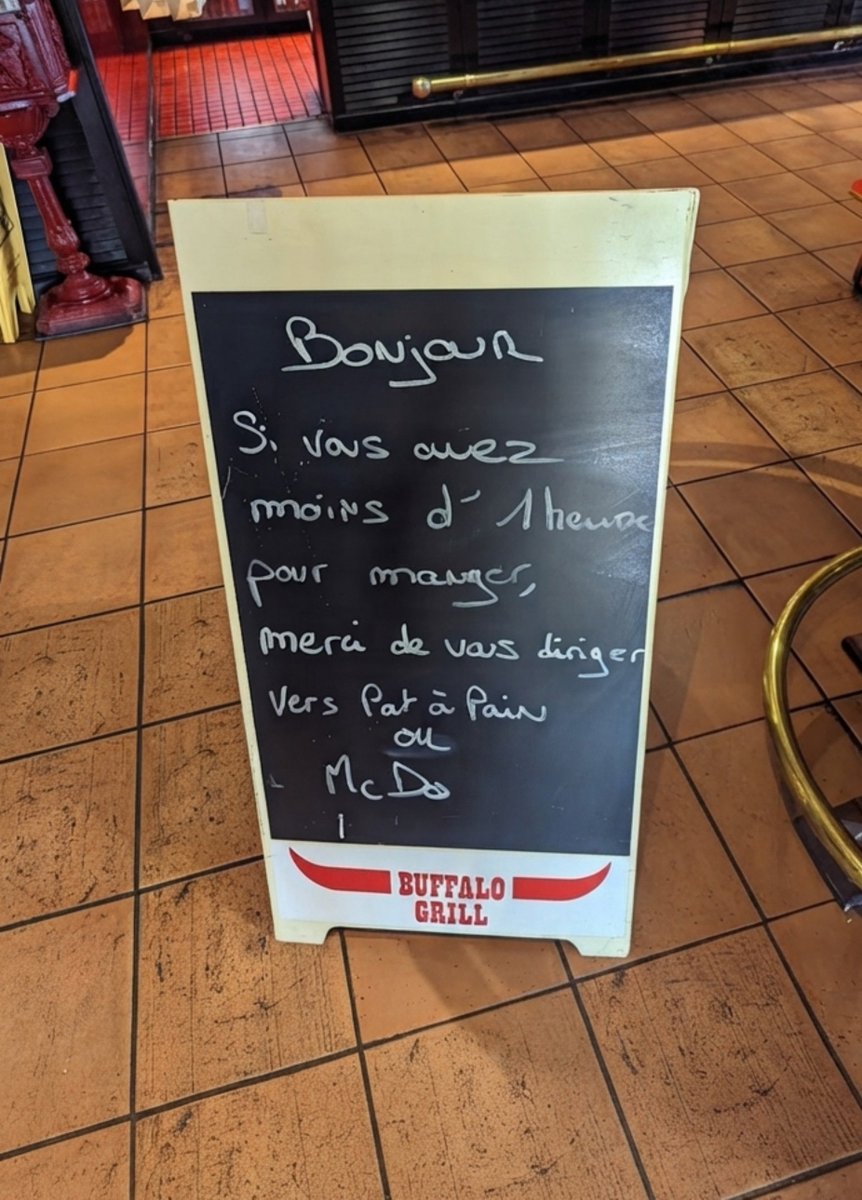 Bonjour
Si vous avez
moins d' 1 heure
pour manger,
merci de vous diriger
vers Pat à Pain
ou
McDo
BUFFALO
GRILL